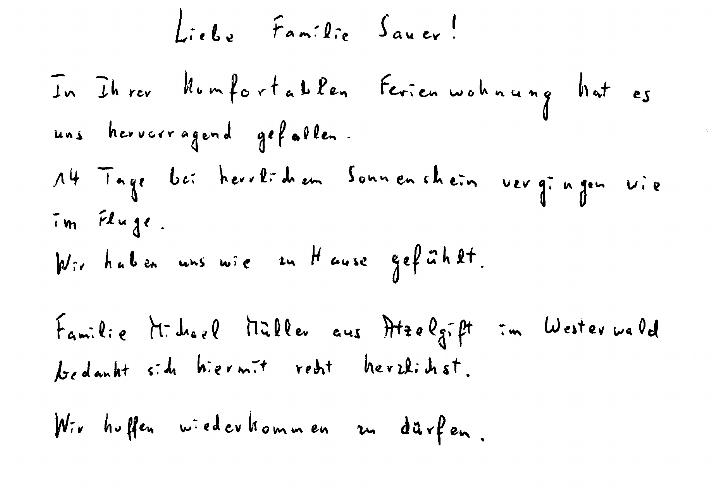 Liebe Familie Sauer!
In Ihrer komfortablen Ferienwohnung hat es
uns hervorragend gefallen.
14 Tage bei herrlichem Sonnenschein vergingen wie
im Fluge.
Wir haben uns wie zu Hause gefühlt.
Familie Michael Müller aus Atzelgift im Westerwald
bedankt sich hiermit recht herzlichst.
Wir hoffen wiederkommen zu dürfen.